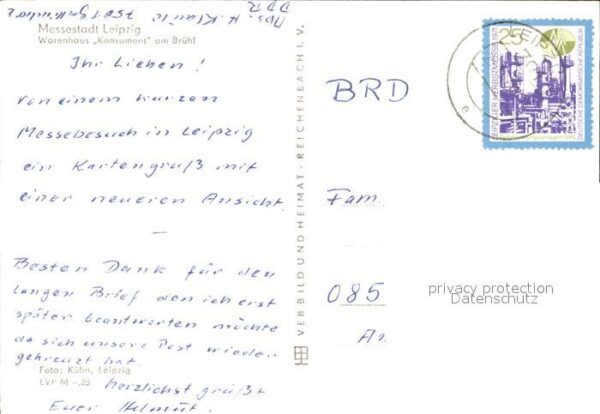 Messestadt Leipzig
Warenhaus „Konsument“ am Brühl
Ihr Lieben!
von einem kurzen
Messebesuch in Leipzig
ein Kartengruß mit
einer neueren Ansicht.
–
Besten Dank für den
langen Brief den ich erst
später beantworten möchte
da sich unsere Post wieder
gekreuzt hat.
Foto: Kühn, Leipzig
EVP M –,25
herzlichst grüßt
Euer Helmut.
VEB BILD UND HEIMAT · REICHENBACH I. V.
BRD
Fam.
085
An
25
LEIPZIGER HERBSTMESSE 1971
DEUTSCHE DEMOKRATISCHE REPUBLIK
privacy protection
Datenschutz